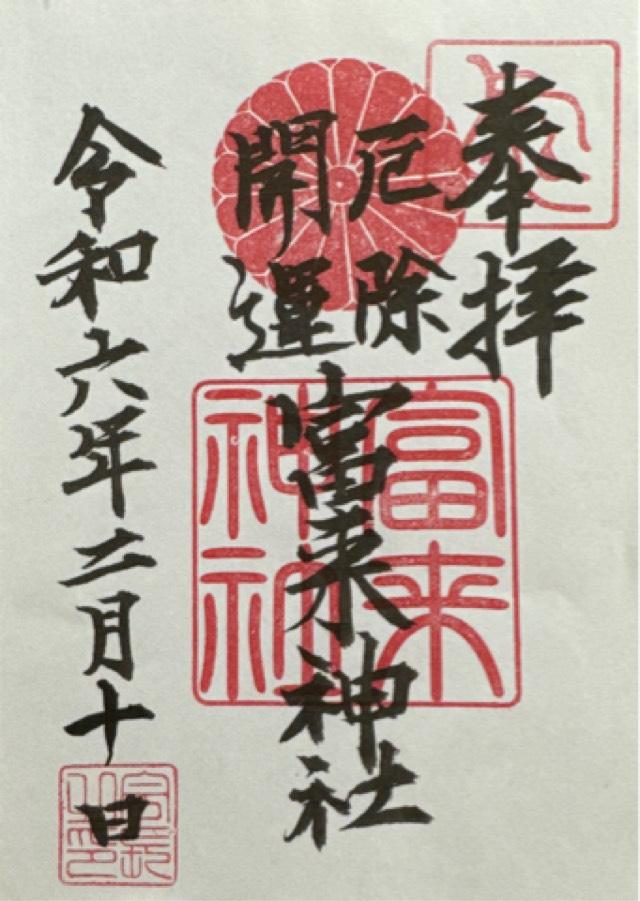 奉拝
厄除
開運
富来神社
富来
神社
令和六年二月十日
宮司之印